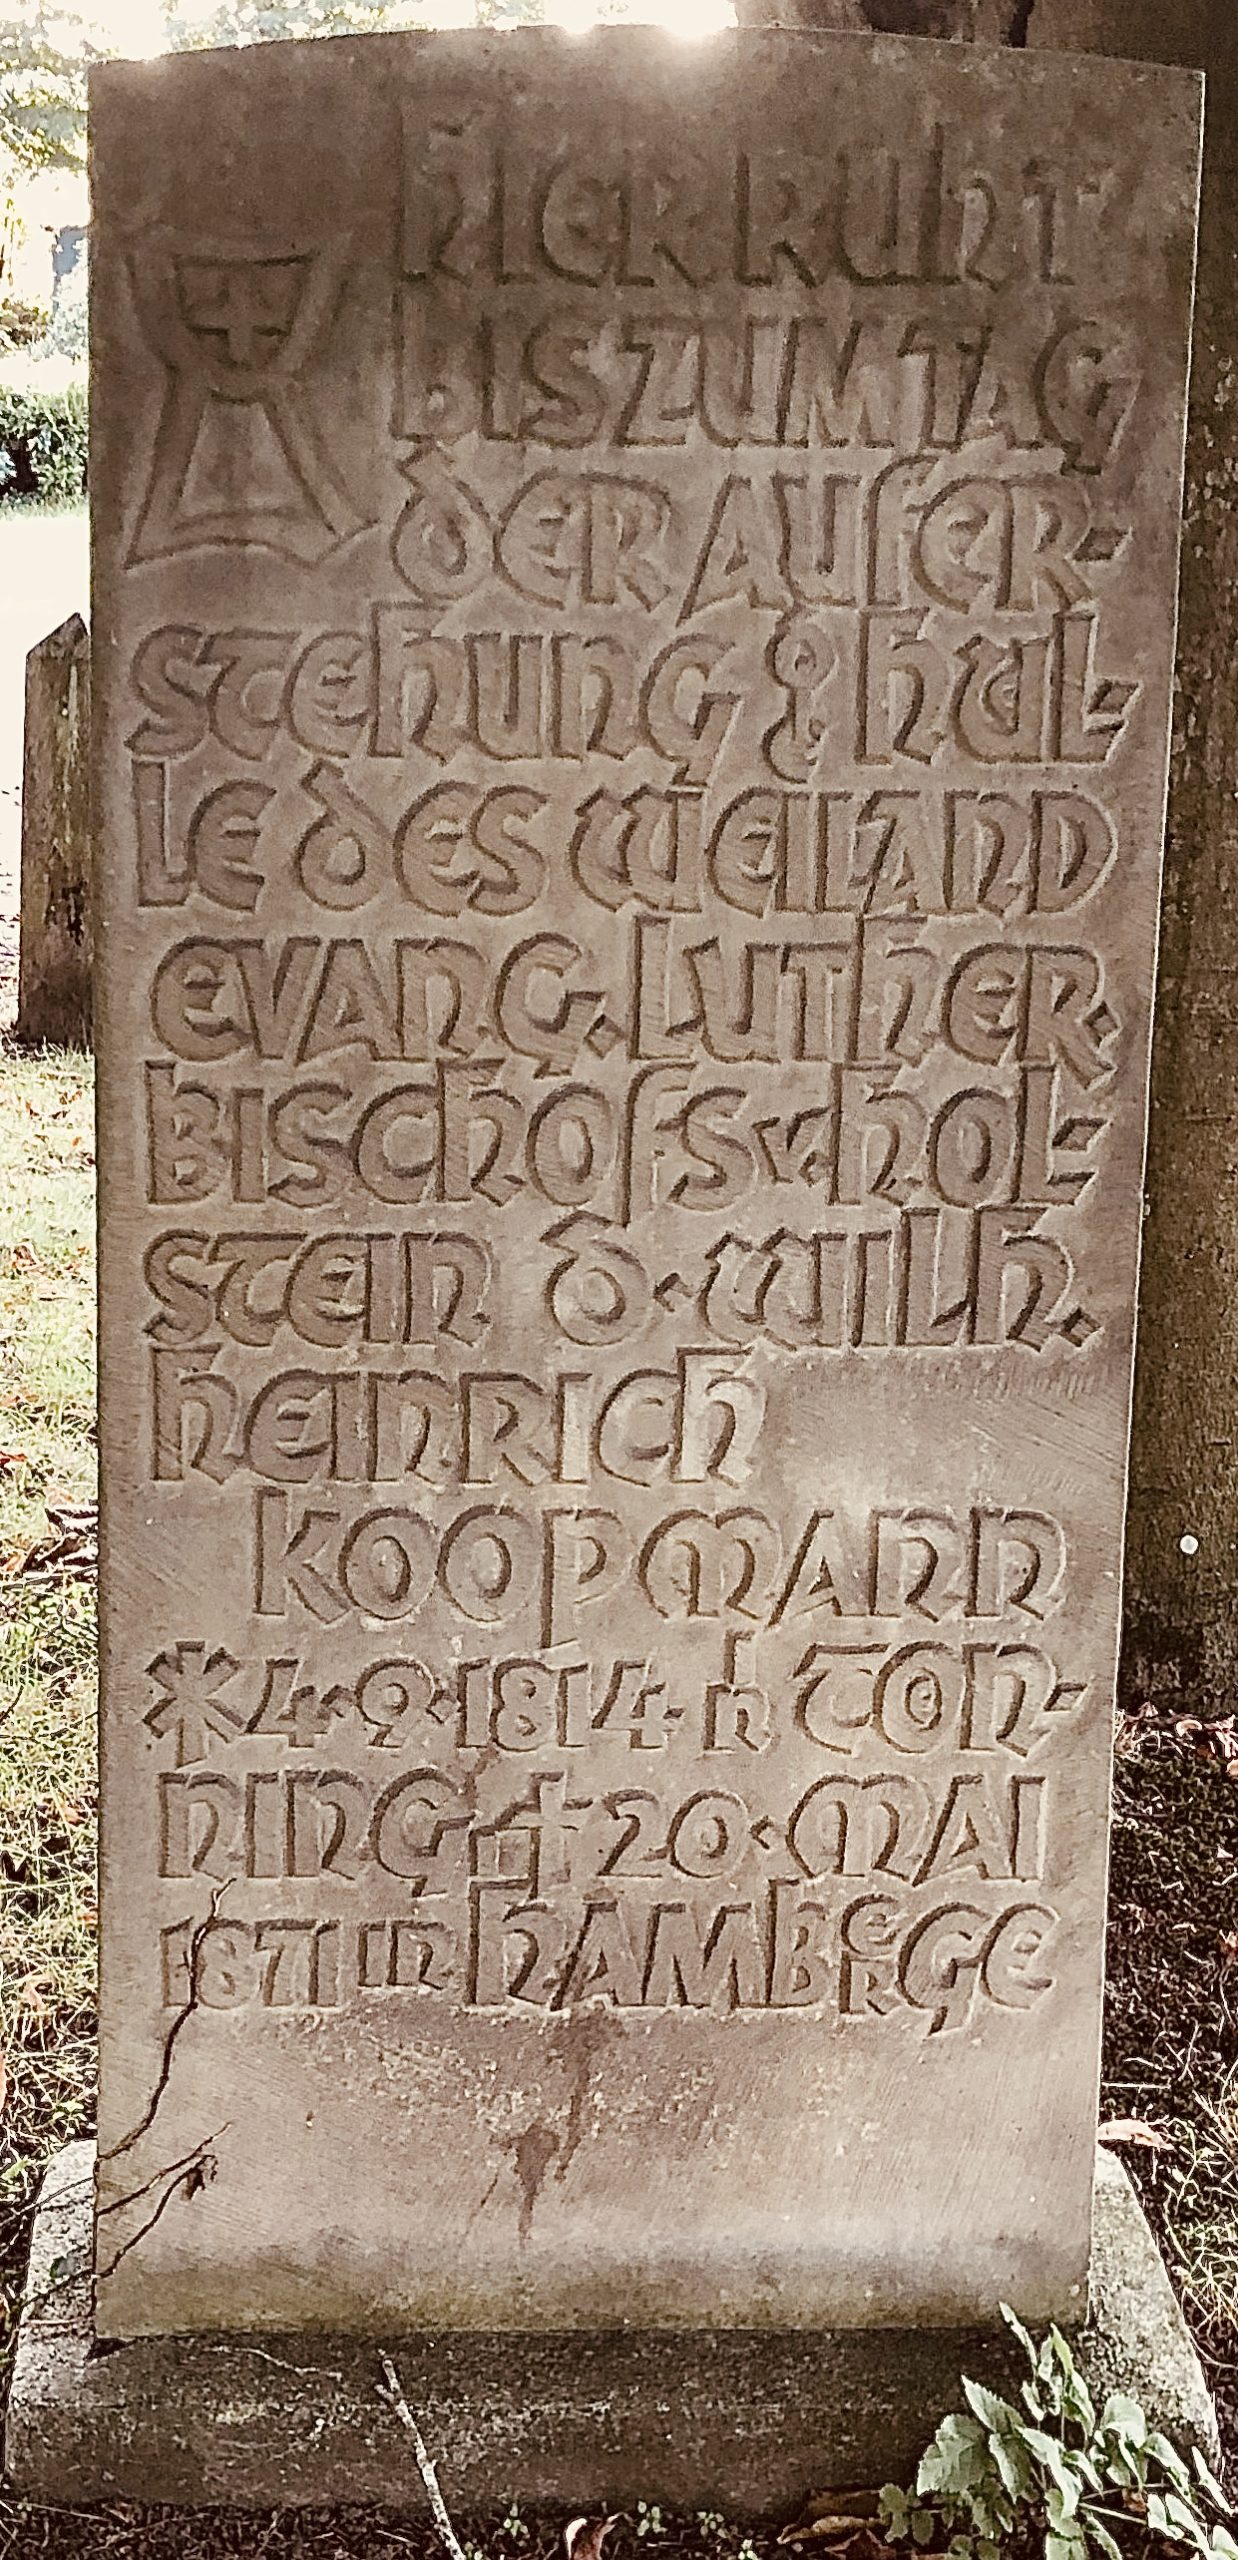 HIER RUHT
BIS ZUM TAG
DER AUFER-
STEHUNG D. HUEL-
LE DES WEILAND
EVANG. LUTHER.
BISCHOFS V. HOL-
STEIN D. WILH.
HEINRICH
KOOPMANN
* 4.9.1814 IN TOEN-
NING † 20. MAI
1871 IN HAMBERGE